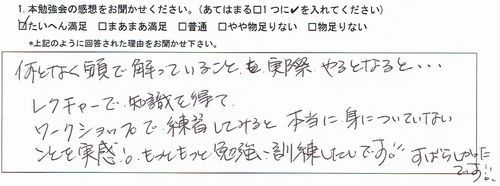 1. 本勉強会の感想をお聞かせください。(あてはまる□1つに✔を入れてください)
☑たいへん満足 □まあまあ満足 □普通 □やや物足りない □物足りない
*上記のように回答された理由をお聞かせ下さい。
何となく頭で解っていることも実際やるとなると・・・
レクチャーで知識を得て
ワークショップで練習してみると本当に身についていない
ことを実感!。もっともっと勉強い訓練したいです。!! すばらしかった
です!!